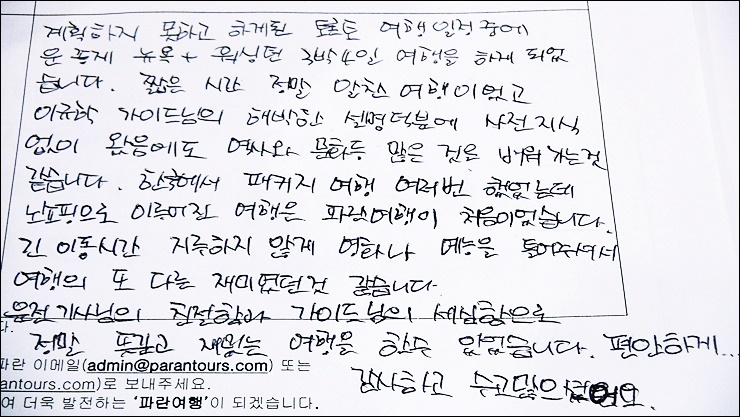 계획하지 못하고 하게된 토론토 여행일정중에
운좋게 뉴욕 + 워싱턴 3박4일 여행을 하게 되었
습니다. 짧은 시간 정말 알찬 여행이었고
이규학 가이드님의 해박한 설명덕분에 사전지식
없이 왔음에도 역사와 문화등 많은 것을 배워가는것
같습니다. 한국에서 패키지 여행 여러번 했었는데
노쇼핑으로 이루어진 여행은 파란여행이 처음이었습니다.
긴 이동시간 지루하지 않게 영화나 예능을 틀어주셔서
여행의 또 다른 재미였던것 같습니다
운전기사님의 친절함과 가이드님의 세심함으로
다.
정말 뜻깊고 재밌는 여행을 할수 있었습니다. 편안하게...
파란 이메일(admin@parantours.com) 또는
감사하고 수고많으셨어요.
antours.com)로 보내주세요.
여 더욱 발전하는 '파란여행'이 되겠습니다.